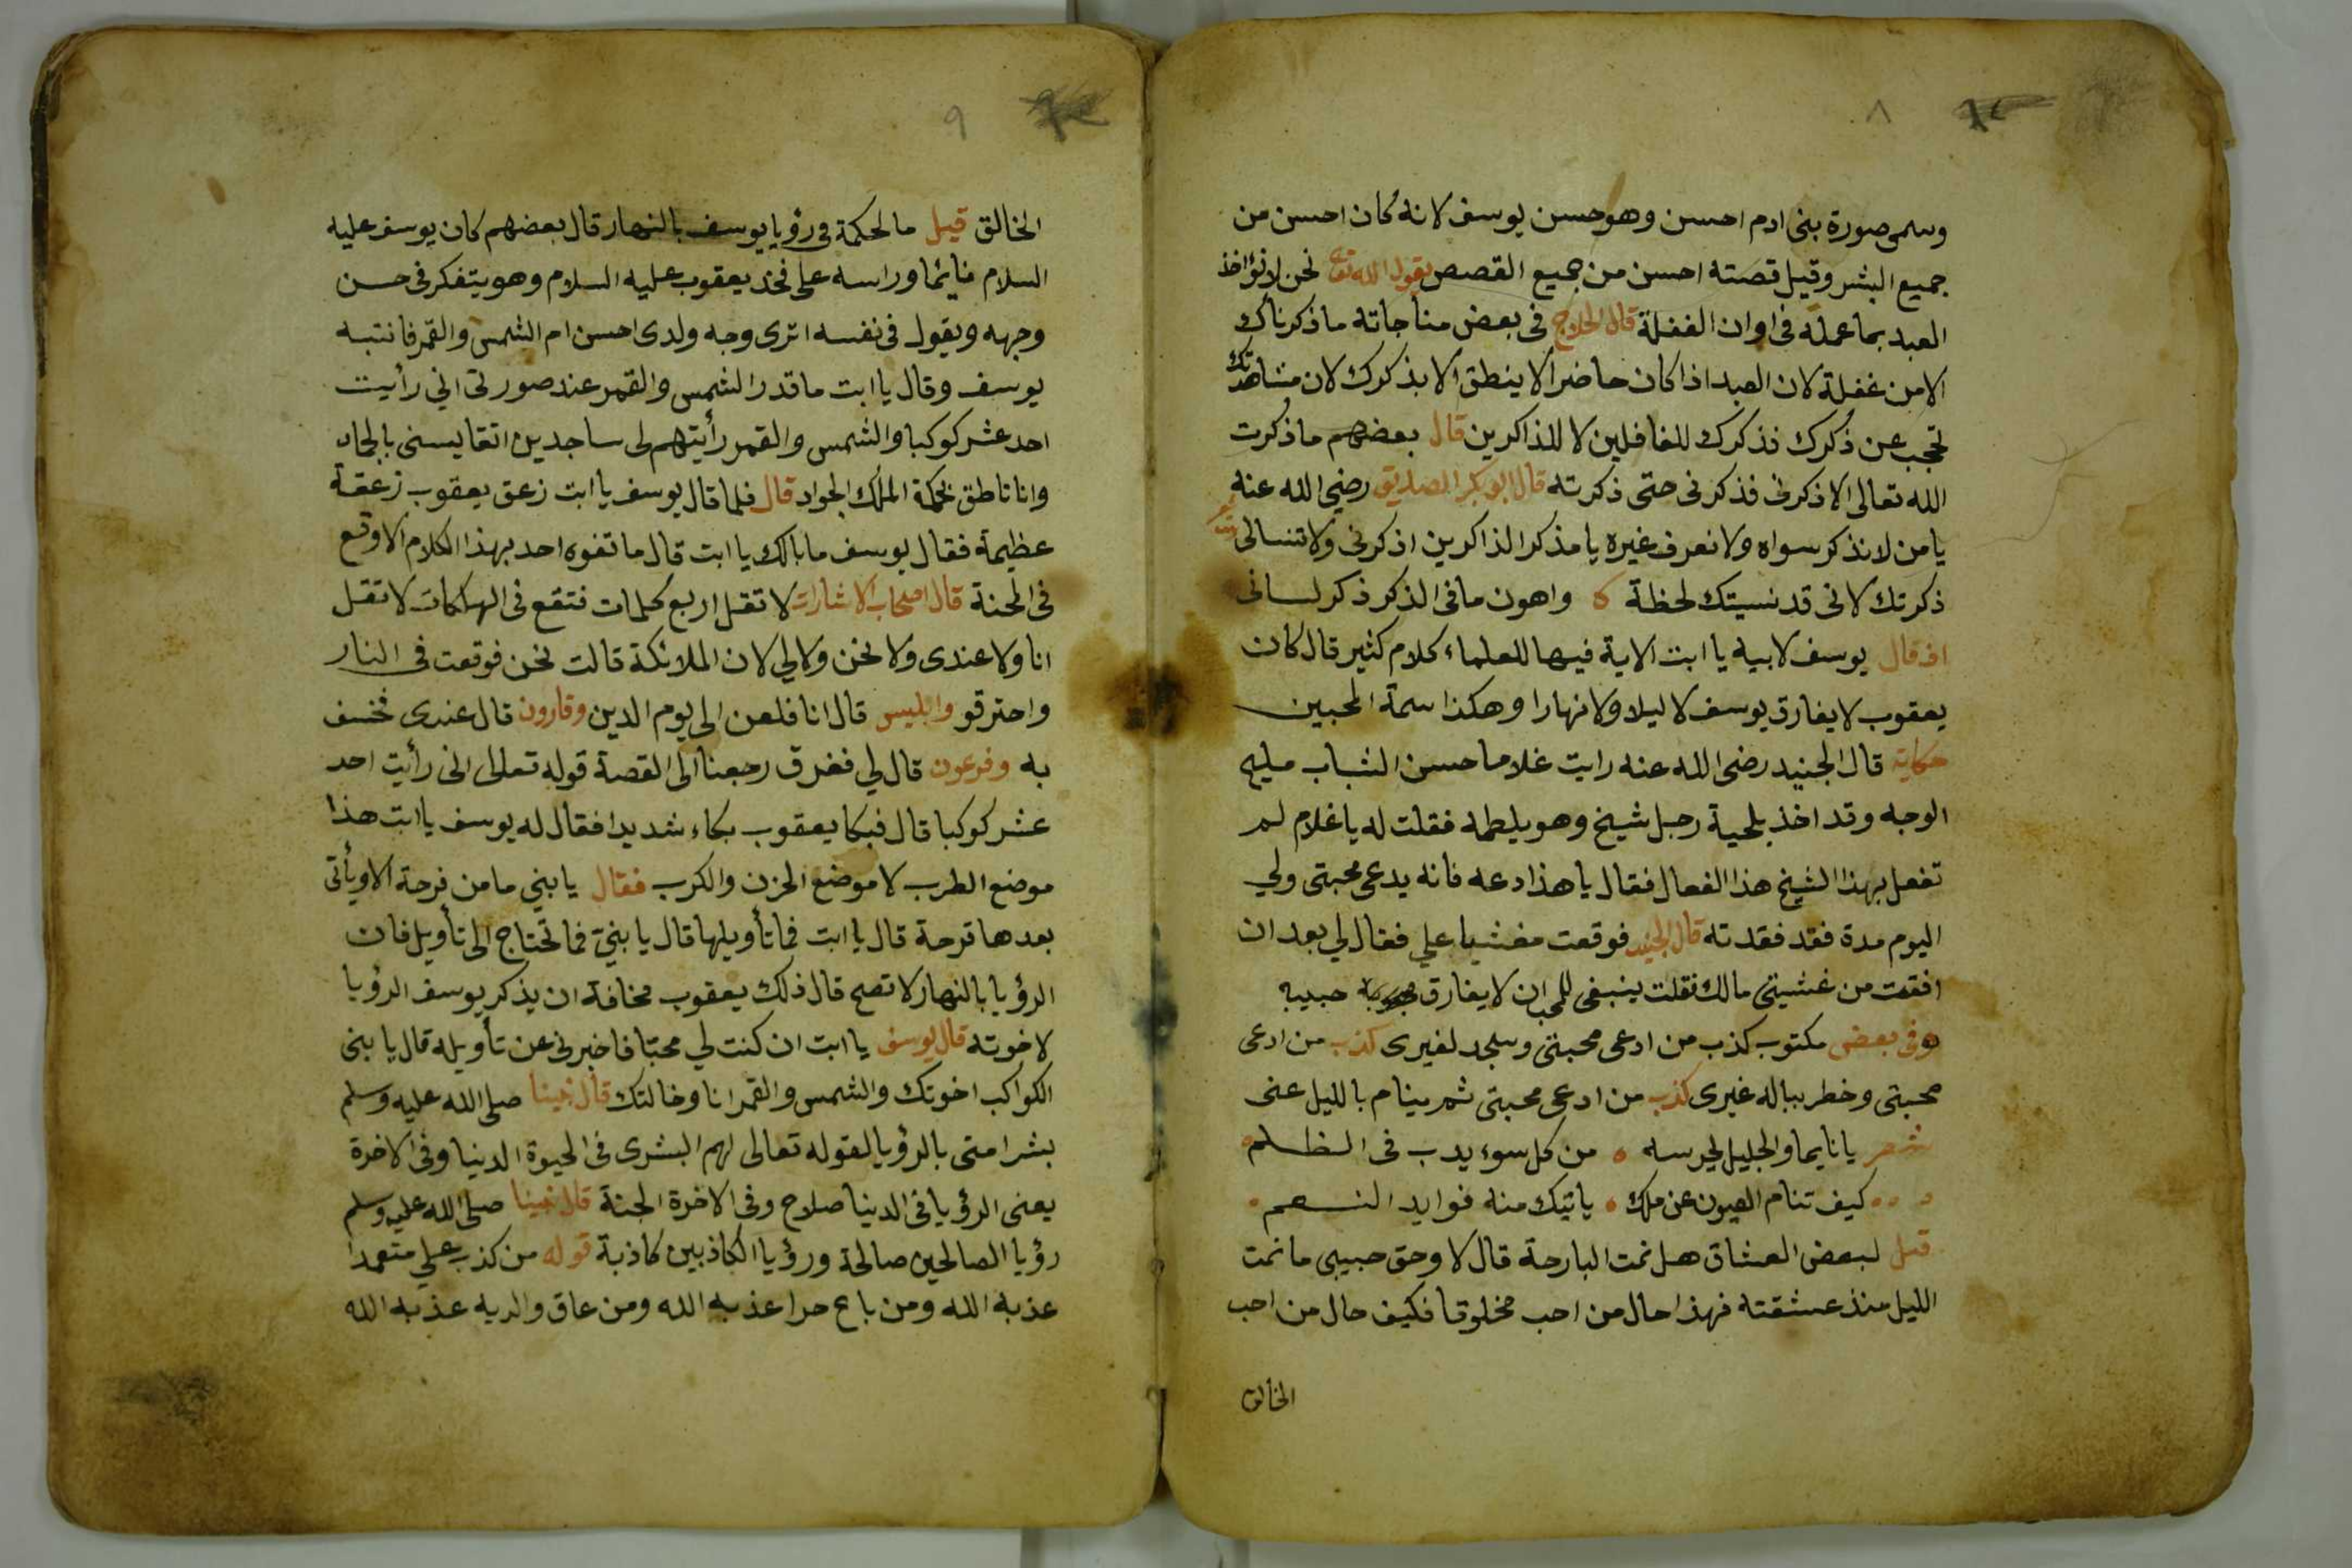 ٨
وسمى صورة بنى ادم احسن وهو حسن يوسف لانه كان احسن من
جميع البشر وقيل قصته احسن من جميع القصص يقول الله تعا نحن لا نؤاخذ
العبد بما عمله فى اوان الغفلة قال الحلاج فى بعض مناجاته ما ذكرناك
الا من غفلة لان العبد اذا كان حاضرا لا ينطق الا بذكرك لان مشاهدتك
تحجب عن ذكرك فذكرك للغافلين لا للذاكرين قال بعضهم ما ذكرت
الله تعالى الا ذكرنى فذكرنى حتى ذكرته قال ابو بكر الصديق رضى الله عنه
يا من لا نذكر سواه ولا نعرف غيره يا مذكر الذاكرين اذكرنى ولا تنسالى
ذكرتك لانى قد نسيتك لحظة واهون ما فى الذكر ذكر لسانى
اذ قال يوسف لابيه يا ابت الاية فيها للعلماء كلام كثير قال كان
يعقوب لا يفارق يوسف لا ليلا ولا نهارا وهكذا سمة المحبين
حكاية قال الجنيد رضى الله عنه رايت غلاما حسن الشباب مليح
الوجه وقد اخذ بلحية رجل شيخ وهو يلطمه فقلت له يا غلام لم
تفعل بهذا الشيخ هذا الفعال فقال يا هذا دعه فانه يدعى محبتى ولي
اليوم مدة فقد فقدته قال الجنيد فوقعت مغشيا علي فقال لي بعد ان
افقت من غشيتى مالك فقلت ينبغى للمحب ان لا يفارق حبيبه
وفى بعض مكتوب كذب من ادعى محبتى وسجد لغيرى كذب من ادعى
محبتى وخطر بباله غيرى كذب من ادعى محبتى ثم ينام بالليل عنى
شعر يا نايما والجليل يحرسه من كل سوء يدب فى الظلم
كيف تنام العيون عن ملك ياتيك منه فوايد النعم
قيل لبعض العشاق هل نمت البارحة قال لا وحق حبيبى ما نمت
الليل منذ عشقته فهذا حال من احب مخلوقا فكيف حال من احب
الخالق
٩
الخالق قيل ما لحكمة فى رؤيا يوسف بالنهار قال بعضهم كان يوسف عليه
السلام نايما وراسه على فخذ يعقوب عليه السلام وهو يتفكر فى حسن
وجهه ويقول فى نفسه اترى وجه ولدى احسن ام الشمس والقمر فانتبه
يوسف وقال يا ابت ما قدر الشمس والقمر عند صورتى اني رأيت
احد عشر كوكبا والشمس والقمر رأيتهم لى ساجدين اتقايسنى بالجماد
وانا ناطق بحكمة الملك الجواد قال فلما قال يوسف يا ابت زعق يعقوب زعقة
عظيمة فقال يوسف ما بالك يا ابت قال ما تفوه احد بهذا الكلام الا وقع
فى المحنة قال اصحاب الاشارات لا تقل اربع كلمات فتقع فى الهلكات لا تقل
انا ولا عندى ولا نحن ولا لي لان الملائكة قالت نحن فوقعت فى النار
واحترقو وابليس قال انا فلعن الى يوم الدين وقارون قال عندى فخسف
به وفرعون قال لي فغرق رجعنا الى القصة قوله تعالى انى رأيت احد
عشر كوكبا قال فبكا يعقوب بكاء شديدا فقال له يوسف يا ابت هذا
موضع الطرب لا موضع الحزن والكرب فقال يا بني ما من فرحة الا ويأتى
بعدها قرحة قال يا ابت فما تأويلها قال يا بنيّ فما تحتاج الى تأويل فان
الرؤيا بالنهار لا تصح قال ذلك يعقوب مخافة ان يذكر يوسف الرؤيا
لاخوته قال يوسف يا ابت ان كنت لي محبّا فاخبرنى عن تأويله قال يا بنى
الكواكب اخوتك والشمس والقمر انا وخالتك قال نبينا صلى الله عليه وسلم
بشر امتى بالرؤيا لقوله تعالى لهم البشرى فى الحيوة الدنيا وفى الاخرة
يعنى الرؤيا فى الدنيا صلاح وفى الاخرة الجنة قال نبينا صلى الله عليه وسلم
رؤيا الصالحين صالحة ورؤيا الكاذبين كاذبة قوله من كذب علي متعمدا
عذبه الله ومن باع حرا عذبه الله ومن عاق والديه عذبه الله